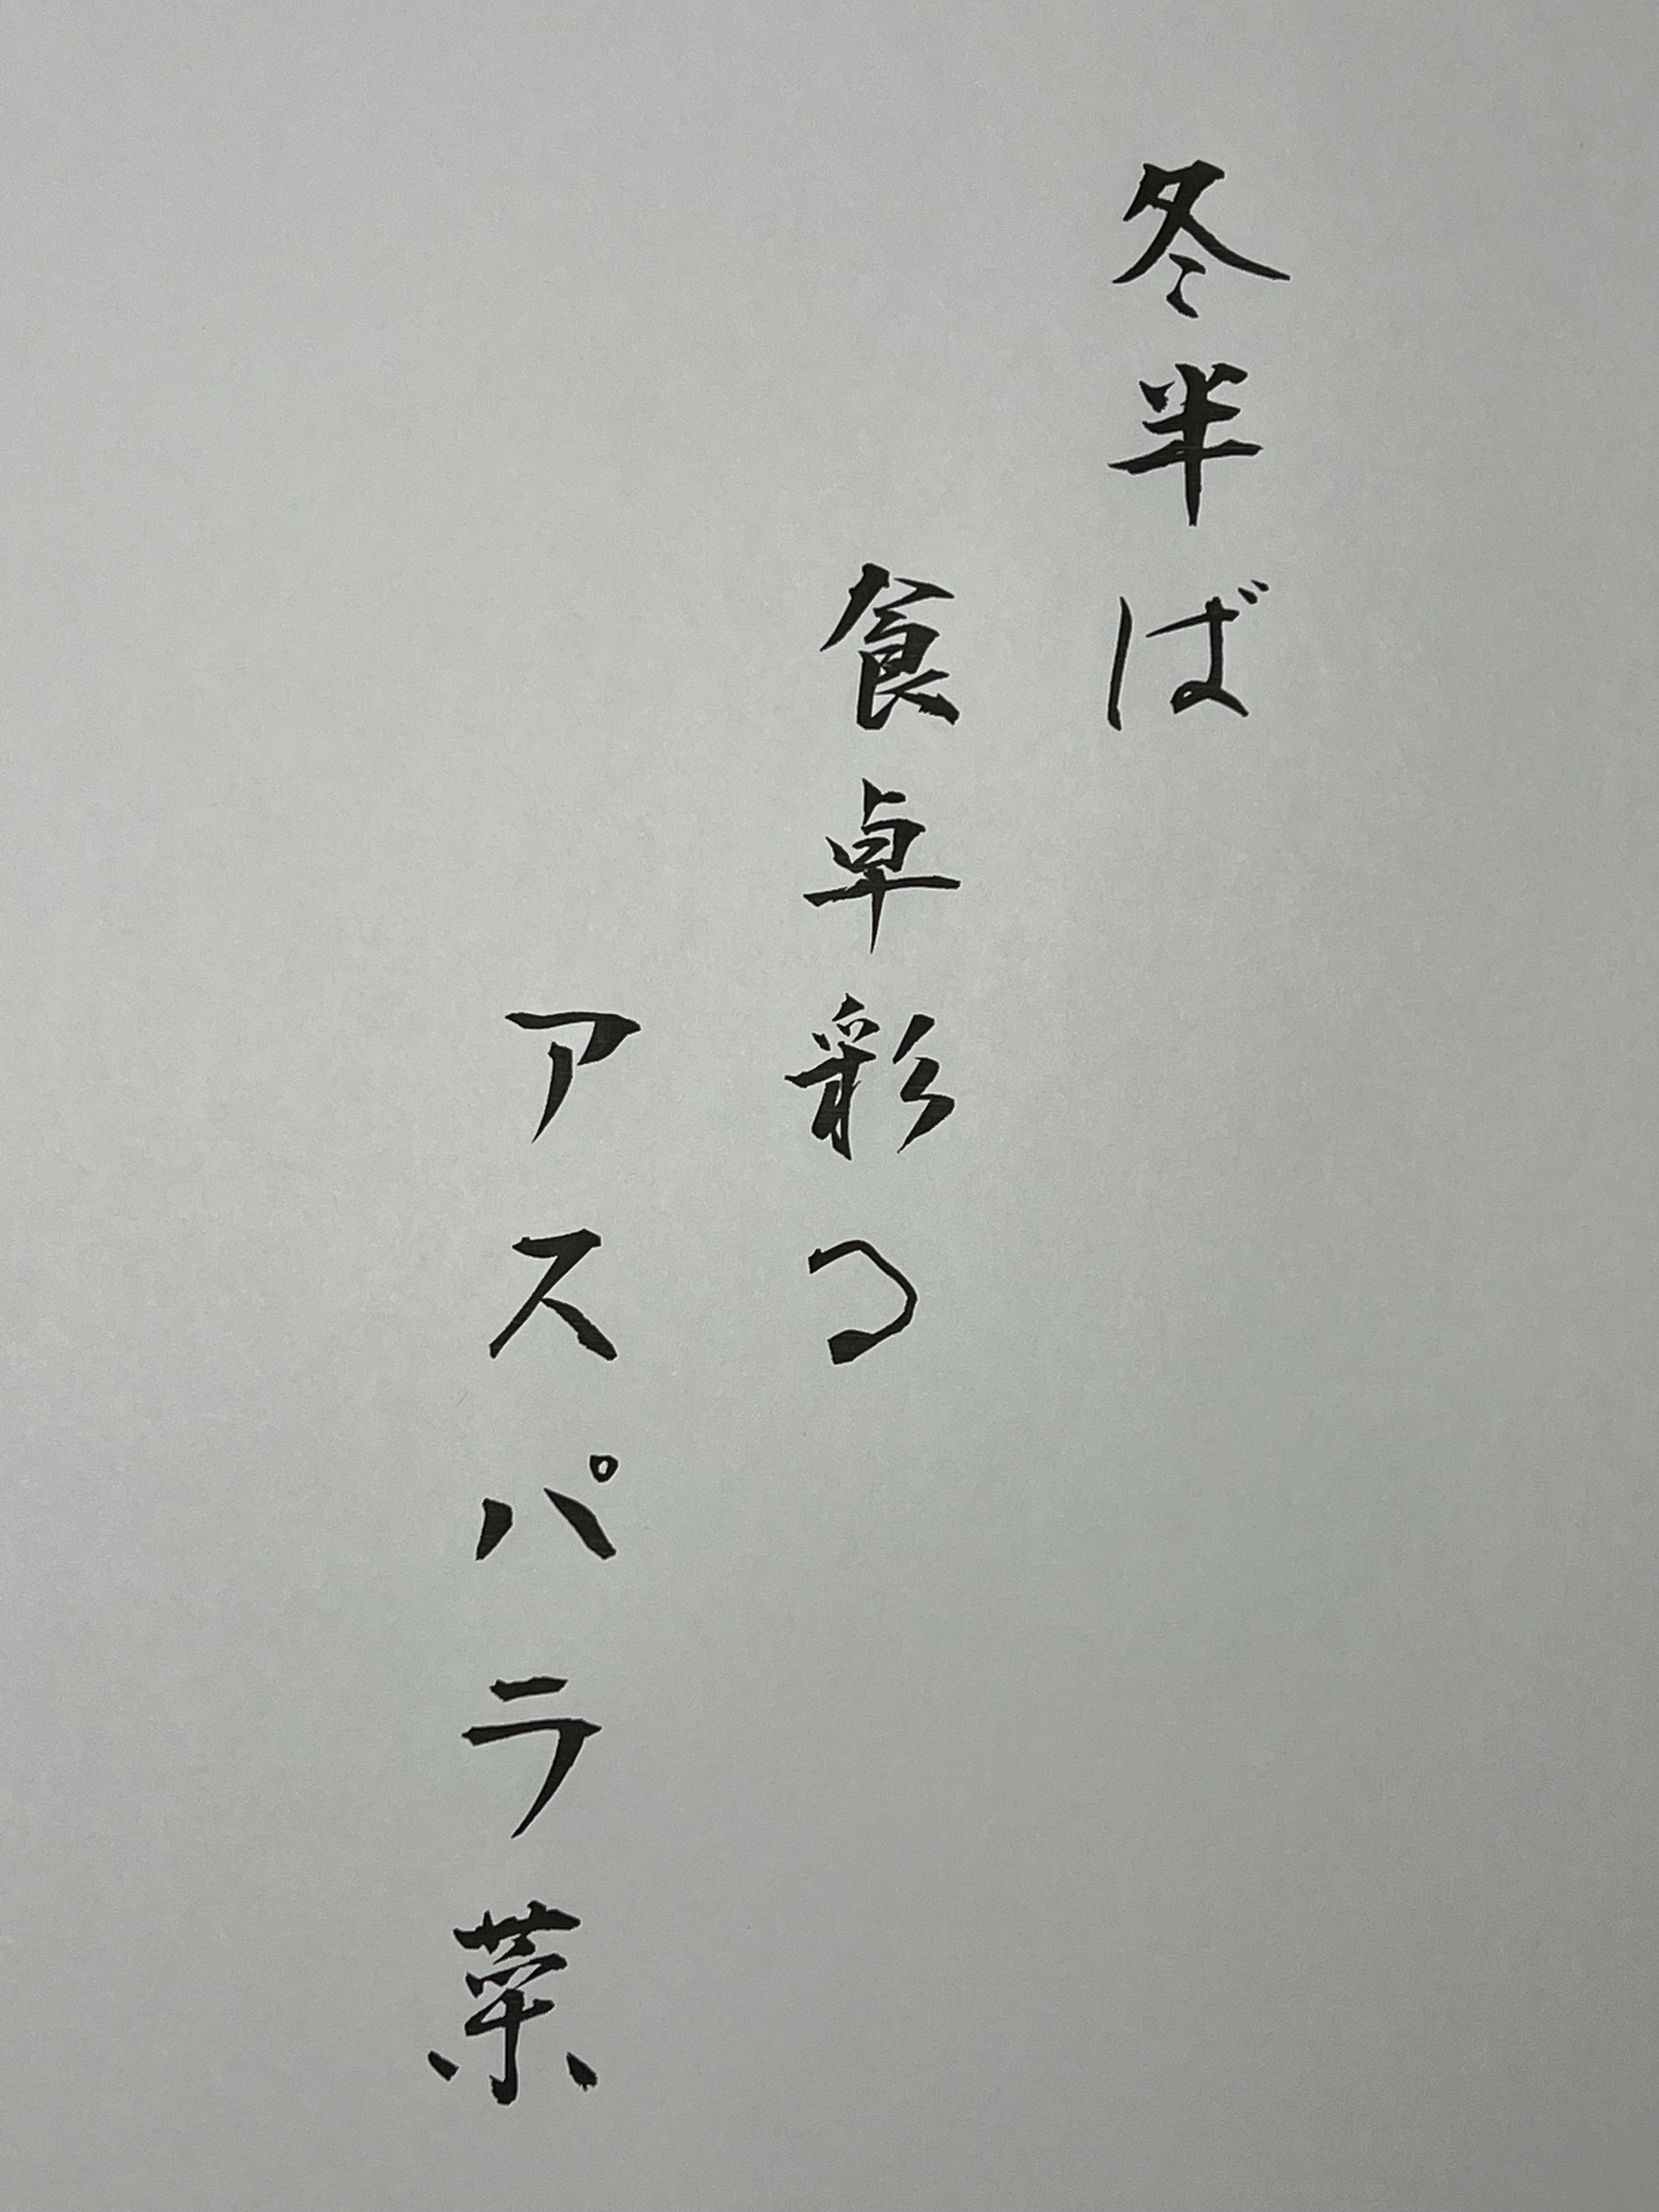 冬半ば
食卓彩る
アスパラ菜